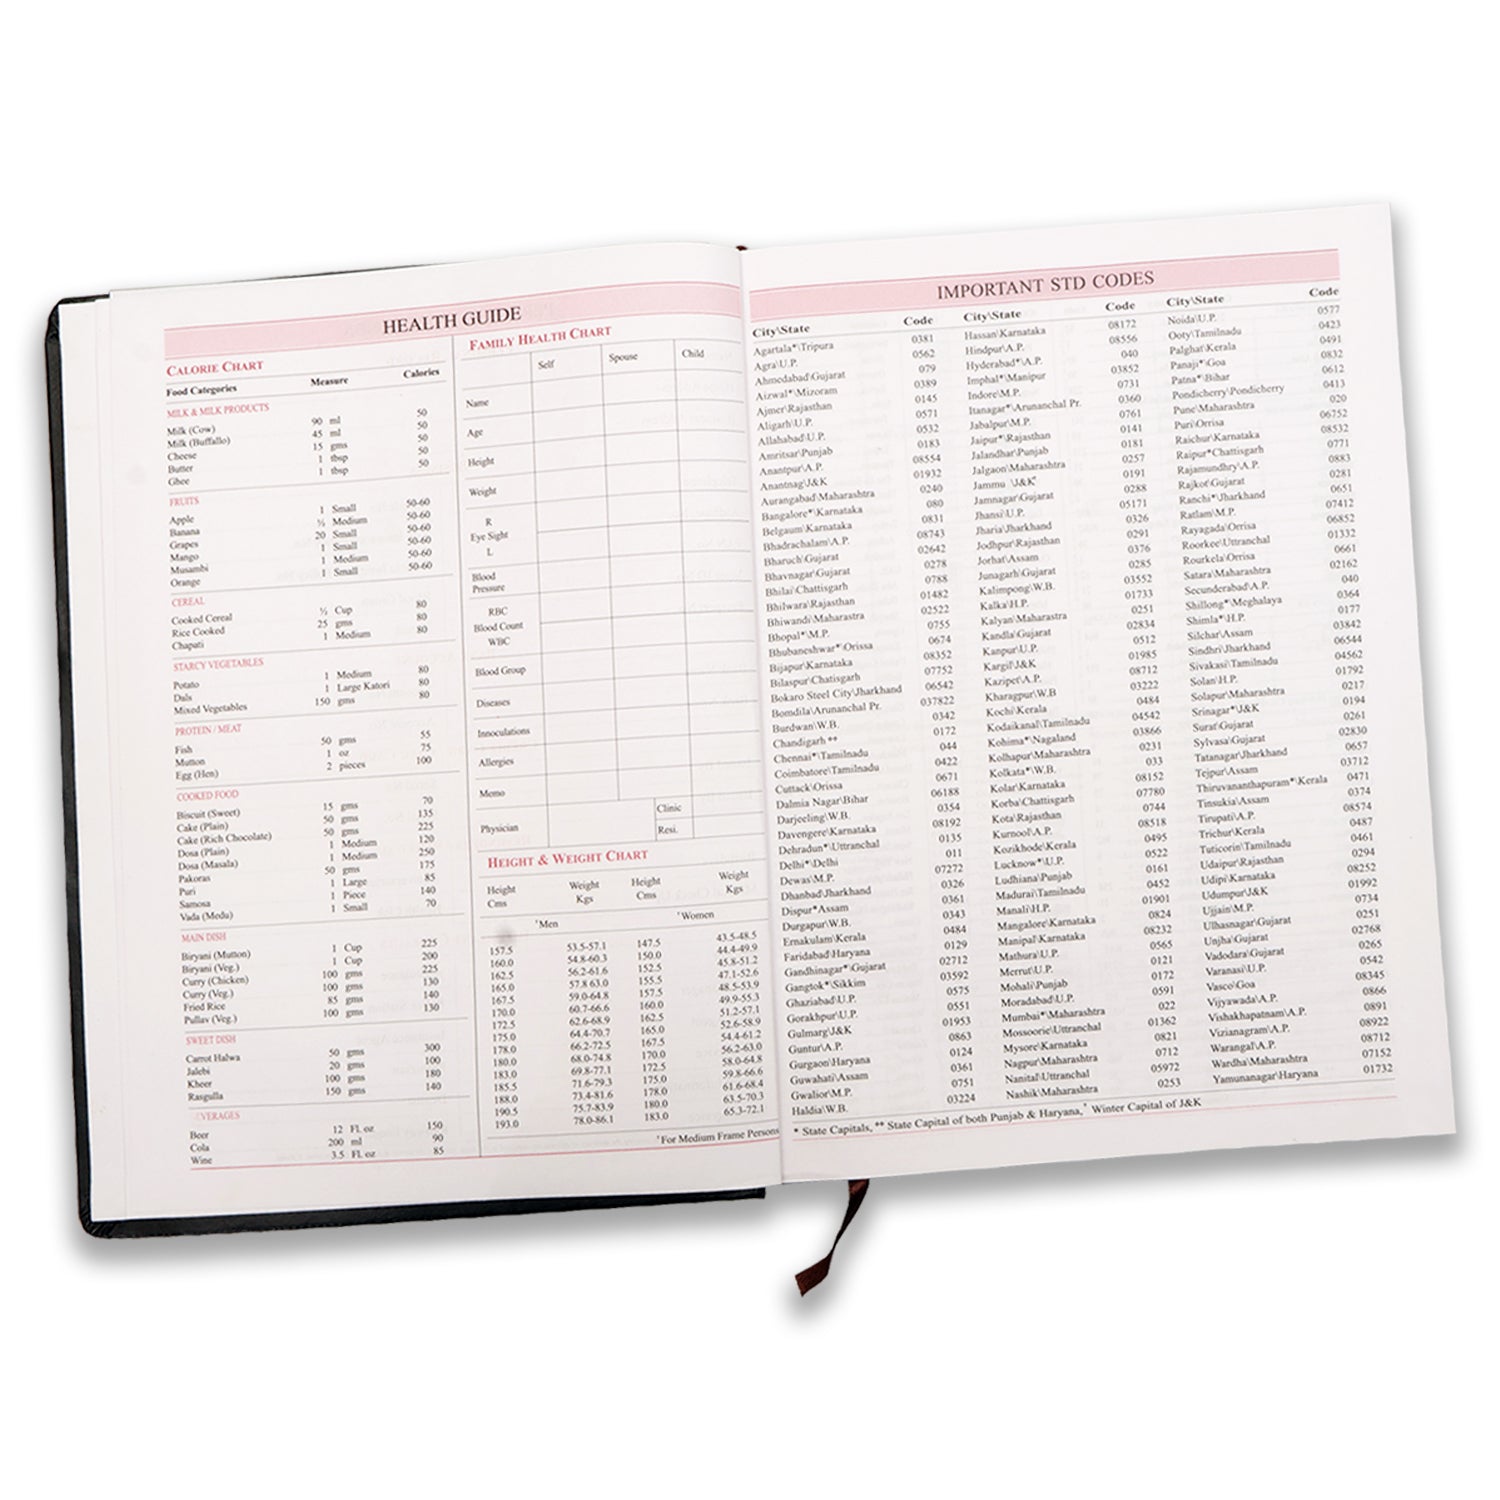 HEALTH GUIDE
CALORIE CHART
Food Categories Measure Calories
MILK & MILK PRODUCTS
Milk (Cow) 90 ml 50
Milk (Buffallo) 45 ml 50
Cheese 15 gms 50
Butter 1 tbsp 50
Ghee 1 tbsp 50
FRUITS
Apple 1 Small 50-60
Banana ½ Medium 50-60
Grapes 20 Small 50-60
Mango 1 Small 50-60
Musambi 1 Medium 50-60
Orange 1 Small 50-60
CEREAL
Cooked Cereal ½ Cup 80
Rice Cooked 25 gms 80
Chapati 1 Medium 80
STARCY VEGETABLES
Potato 1 Medium 80
Dals 1 Large Katori 80
Mixed Vegetables 150 gms 80
PROTEIN / MEAT
Fish 50 gms 55
Mutton 1 oz 75
Egg (Hen) 2 pieces 100
COOKED FOOD
Biscuit (Sweet) 15 gms 70
Cake (Plain) 50 gms 135
Cake (Rich Chocolate) 50 gms 225
Dosa (Plain) 1 Medium 120
Dosa (Masala) 1 Medium 250
Pakoras 50 gms 175
Puri 1 Large 85
Samosa 1 Piece 140
Vada (Medu) 1 Small 70
MAIN DISH
Biryani (Mutton) 1 Cup 225
Biryani (Veg.) 1 Cup 200
Curry (Chicken) 100 gms 225
Curry (Veg.) 100 gms 130
Fried Rice 85 gms 140
Pullav (Veg.) 100 gms 130
SWEET DISH
Carrot Halwa 50 gms 300
Jalebi 20 gms 100
Kheer 100 gms 180
Rasgulla 150 gms 140
VERAGES
Beer 12 Fl. oz 150
Cola 200 ml 90
Wine 3.5 Fl. oz 85
FAMILY HEALTH CHART
Self Spouse Child
Name
Age
Height
Weight
R
Eye Sight
L
Blood
Pressure
RBC
Blood Count
WBC
Blood Group
Diseases
Innoculations
Allergies
Memo
Physician Clinic
Resi.
HEIGHT & WEIGHT CHART
Height Weight Height Weight
Cms Kgs Cms Kgs
'Men 'Women
157.5 53.5-57.1 147.5 43.5-48.5
160.0 54.8-60.3 150.0 44.4-49.9
162.5 56.2-61.6 152.5 45.8-51.2
165.0 57.8 63.0 155.5 47.1-52.6
167.5 59.0-64.8 157.5 48.5-53.9
170.0 60.7-66.6 160.0 49.9-55.3
172.5 62.6-68.9 162.5 51.2-57.1
175.0 64.4-70.7 165.0 52.6-58.9
178.0 66.2-72.5 167.5 54.4-61.2
180.0 68.0-74.8 170.0 56.2-63.0
183.0 69.8-77.1 172.5 58.0-64.8
185.5 71.6-79.3 175.0 59.8-66.6
188.0 73.4-81.6 178.0 61.6-68.4
190.5 75.7-83.9 180.0 63.5-70.3
193.0 78.0-86.1 183.0 65.3-72.1
'For Medium Frame Persons
IMPORTANT STD CODES
City\State Code
Agartala*\Tripura 0381
Agra\U.P. 0562
Ahmedabad\Gujarat 079
Aizwal*\Mizoram 0389
Ajmer\Rajasthan 0145
Aligarh\U.P. 0571
Allahabad\U.P. 0532
Amritsar\Punjab 0183
Anantpur\A.P. 08554
Anantnag\J&K 01932
Aurangabad\Maharashtra 0240
Bangalore*\Karnataka 080
Belgaum\Karnataka 0831
Bhadrachalam\A.P. 08743
Bharuch\Gujarat 02642
Bhavnagar\Gujarat 0278
Bhilai\Chattisgarh 0788
Bhilwara\Rajasthan 01482
Bhiwandi\Maharastra 02522
Bhopal*\M.P. 0755
Bhubaneshwar*\Orissa 0674
Bijapur\Karnataka 08352
Bilaspur\Chatisgarh 07752
Bokaro Steel City\Jharkhand 06542
Bomdila\Arunanchal Pr. 037822
Burdwan\W.B. 0342
Chandigarh ** 0172
Chennai*\Tamilnadu 044
Coimbatore\Tamilnadu 0422
Cuttack\Orissa 0671
Dalmia Nagar\Bihar 06188
Darjeeling\W.B. 0354
Davengere\Karnataka 08192
Dehradun*\Uttranchal 0135
Delhi*\Delhi 011
Dewas\M.P. 07272
Dhanbad\Jharkhand 0326
Dispur*Assam 0361
Durgapur\W.B. 0343
Ernakulam\Kerala 0484
Faridabad\Haryana 0129
Gandhinagar*\Gujarat 02712
Gangtok*\Sikkim 03592
Ghaziabad\U.P. 0575
Gorakhpur\U.P. 0551
Gulmarg\J&K 01953
Guntur\A.P. 0863
Gurgaon\Haryana 0124
Guwahati\Assam 0361
Gwalior\M.P. 0751
Haldia\W.B. 03224
City\State Code
Hassan\Karnataka 08172
Hindpur\A.P. 08556
Hyderabad*\A.P. 040
Imphal*\Manipur 03852
Indore\M.P. 0731
Itanagar*\Arunanchal Pr. 0360
Jabalpur\M.P. 0761
Jaipur*\Rajasthan 0141
Jalandhar\Punjab 0181
Jalgaon\Maharashtra 0257
Jammu \J&K' 0191
Jamnagar\Gujarat 0288
Jhansi\U.P. 05171
Jharia\Jharkhand 0326
Jodhpur\Rajasthan 0291
Jorhat\Assam 0376
Junagarh\Gujarat 0285
Kalimpong\W.B. 03552
Kalka\H.P. 01733
Kalyan\Maharastra 0251
Kandla\Gujarat 02834
Kanpur\U.P. 0512
Kargil\J&K 01985
Kazipet\A.P. 08712
Kharagpur\W.B 03222
Kochi\Kerala 0484
Kodaikanal\Tamilnadu 04542
Kohima*\Nagaland 03866
Kolhapur\Maharashtra 0231
Kolkata*\W.B. 033
Kolar\Karnataka 08152
Korba\Chattisgarh 07780
Kota\Rajasthan 0744
Kurnool\A.P. 08518
Kozikhode\Kerala 0495
Lucknow*\U.P. 0522
Ludhiana\Punjab 0161
Madurai\Tamilnadu 0452
Manali\H.P. 01901
Mangalore\Karnataka 0824
Manipal\Karnataka 08232
Mathura\U.P. 0565
Merrut\U.P. 0121
Mohali\Punjab 0172
Moradabad\U.P. 0591
Mumbai*\Maharashtra 022
Mossoorie\Uttranchal 01362
Mysore\Karnataka 0821
Nagpur\Maharashtra 0712
Nanital\Uttranchal 05972
Nashik\Maharashtra 0253
City\State Code
Noida\U.P. 0577
Ooty\Tamilnadu 0423
Palghat\Kerala 0491
Panaji*\Goa 0832
Patna*\Bihar 0612
Pondicherry\Pondicherry 0413
Pune\Maharashtra 020
Puri\Orrisa 06752
Raichur\Karnataka 08532
Raipur*\Chattisgarh 0771
Rajamundhry\A.P. 0883
Rajkot\Gujarat 0281
Ranchi*\Jharkhand 0651
Ratlam\M.P. 07412
Rayagada\Orrisa 06852
Roorkee\Uttranchal 01332
Rourkela\Orissa 0661
Satara\Maharashtra 02162
Secunderabad\A.P. 040
Shillong*\Meghalaya 0364
Shimla*\H.P. 0177
Silchar\Assam 03842
Sindhri\Jharkhand 06544
Sivakasi\Tamilnadu 04562
Solan\H.P. 01792
Solapur\Maharashtra 0217
Srinagar*\J&K 0194
Surat\Gujarat 0261
Sylvasa\Gujarat 02830
Tatanagar\Jharkhand 0657
Tejpur\Assam 03712
Thiruvananthapuram*\Kerala 0471
Tinsukia\Assam 0374
Tirupati\A.P. 08574
Trichur\Kerala 0487
Tuticorin\Tamilnadu 0461
Udaipur\Rajasthan 0294
Udipi\Karnataka 08252
Udumpur\J&K 01992
Ujjain\M.P. 0734
Ulhasnagar\Gujarat 0251
Unjha\Gujarat 02768
Vadodara\Gujarat 0265
Varanasi\U.P. 0542
Vasco\Goa 08345
Vijyawada\A.P. 0866
Vishakhapatnam\A.P. 0891
Vizianagram\A.P. 08922
Warangal\A.P. 08712
Wardha\Maharashtra 07152
Yamunanagar\Haryana 01732
* State Capitals, ** State Capital of both Punjab & Haryana,' Winter Capital of J&K